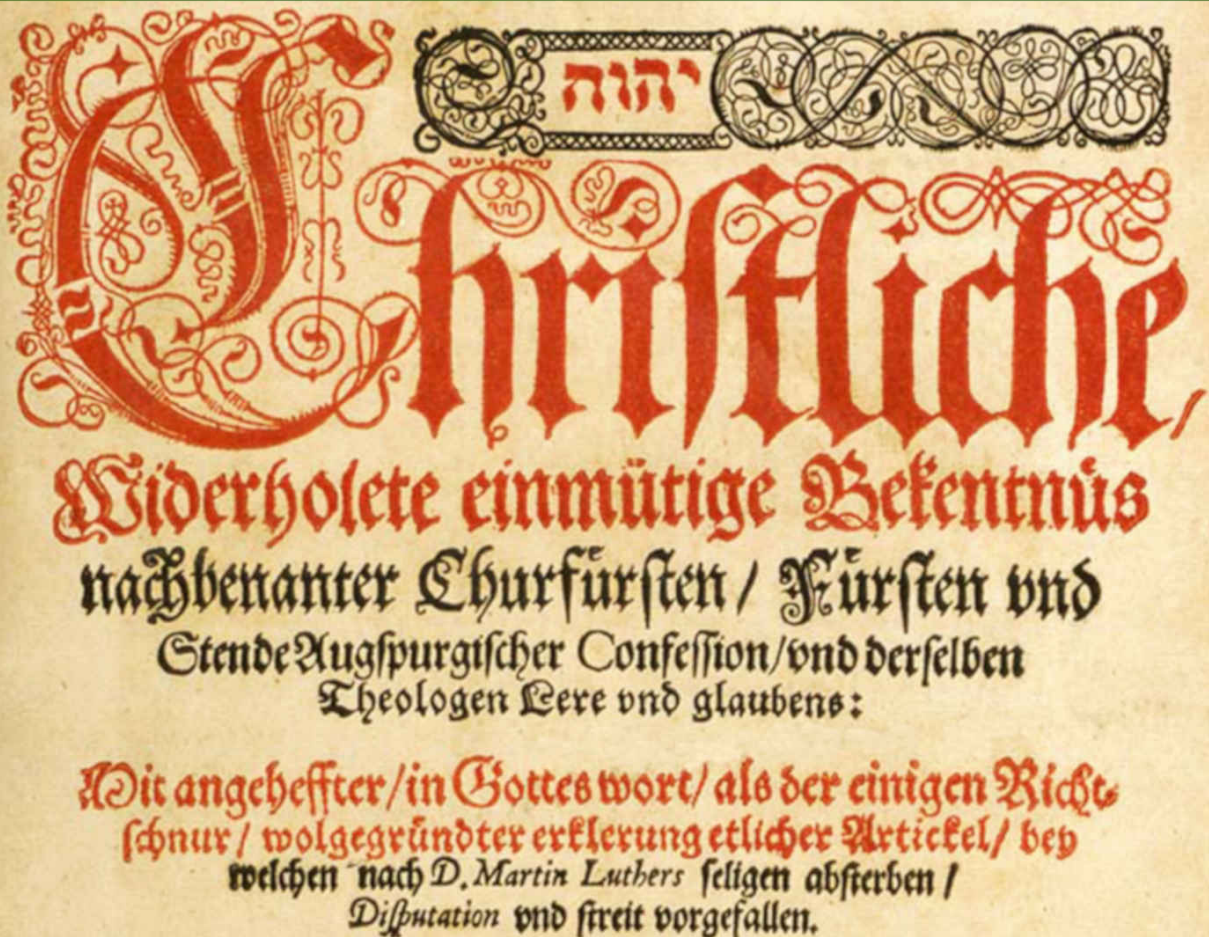 יהוה
Chriſtliche/
Widerholete einmütige Bekentnüs
nachbenanter Churfürſten/ Fürſten vnd
Stende Augſpurgiſcher Confeſſion/vnd derſelben
Theologen Lere vnd glaubens:
Mit angeheffter/in Gottes wort/ als der einigen Richt⸗
ſchnur/ wolgegründter erklerung etlicher Artickel/ bey
welchen nach D. Martin Luthers ſeligen abſterben /
Diſputation vnd ſtreit vorgefallen.